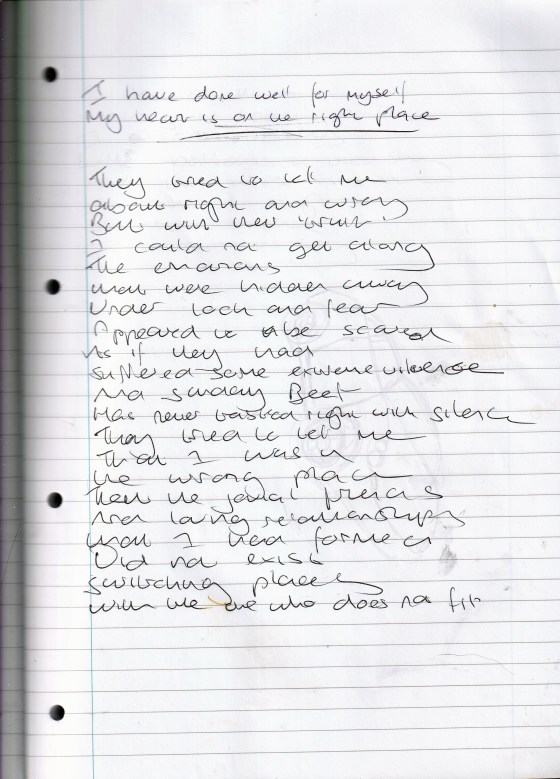 I have done well for myself
My heart is on the right place
They tried to tell me
about right and wrong
But with their 'truth'
I could not get along
The emotions
that were hidden away
Under lock and fear
Appeared to be scared
As if they had
suffered some extreme violence
And Sunday Beef
Has never tasted right with silence
They tried to tell me
That I was in
the wrong place
That the jovial friends
And loving relationships
that I had formed
Did not exist
switching places
with the one who does not fit